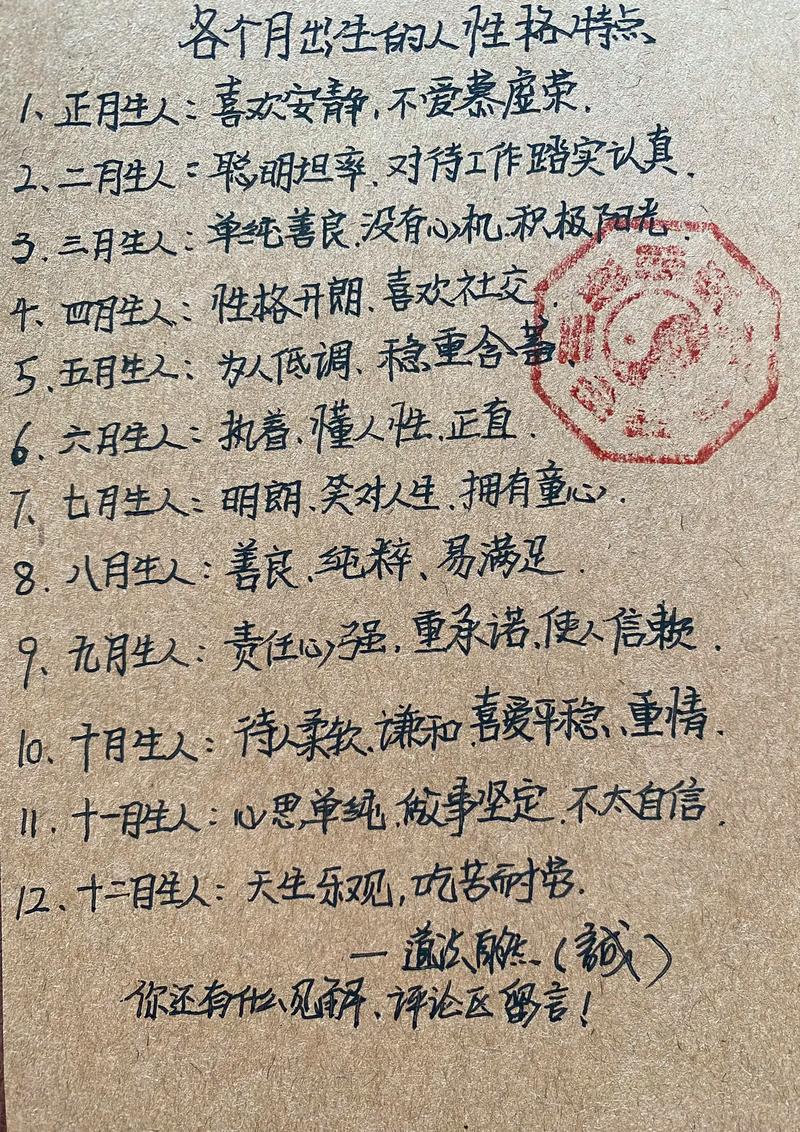 各个月出生的人性格特点
1、正月生人：喜欢安静，不爱慕虚荣.
2、二月生人：聪明坦率、对待工作踏实认真.
3、三月生人：单纯善良、没有心机、积极阳光.
4、四月生人：性格开朗、喜欢社交.
5、五月生人：为人低调、稳重含蓄.
6、六月生人：执着、懂人性、正直.
7、七月生人：明朗、笑对人生、拥有童心.
8、八月生人：善良、纯粹、易满足.
9、九月生人：责任心强，重承诺、使人信赖.
10、十月生人：待人柔软、谦和、喜爱平稳、重情.
11、十一月生人：心思单纯、做事坚定、不太自信.
12、十二月生人：天生乐观，吃苦耐劳.
— 道法自然（誠）
你还有什么见解、评论区留言！